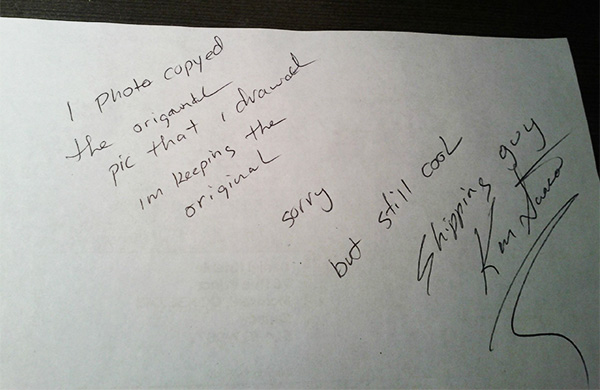 I Photo copyed
the
pic that i drawad
im keeping the
original
sorry
but still cool
Shipping guy